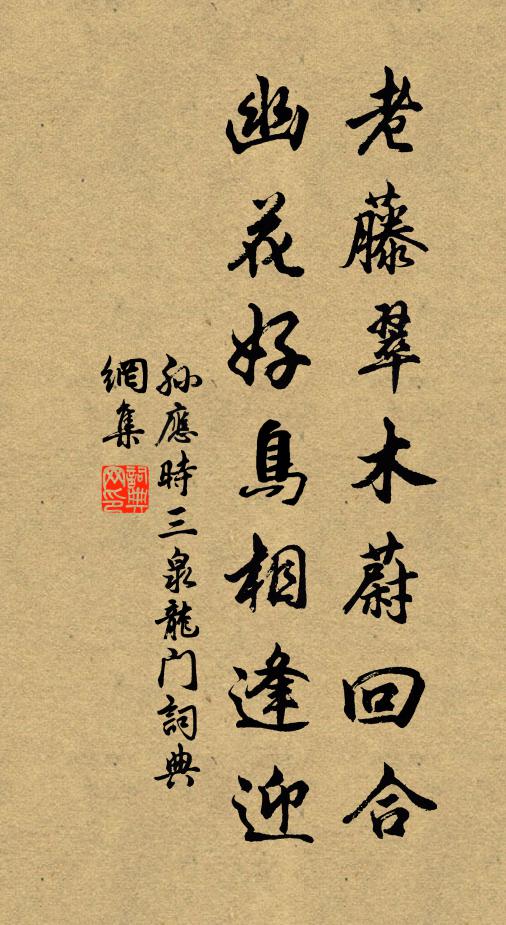 老藤翠木蔚回合
幽花好鳥相逢迎
孫應時三泉龍门詞典
網集
詞典网印